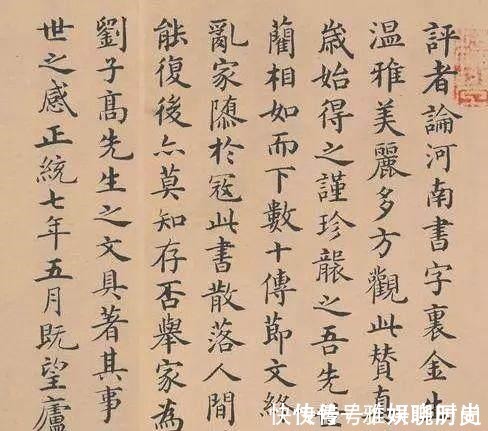 評者論河南書字裏金生
温雅美麗多方觀此賛有
歲始得之謹珍襲之吾先
藺相如而下數十傳莭文終
亂家隳於冦此書散落人間
能復後亦莫知存否舉家為
劉子髙先生之文具著其事
世之感正統七年五月既望廬